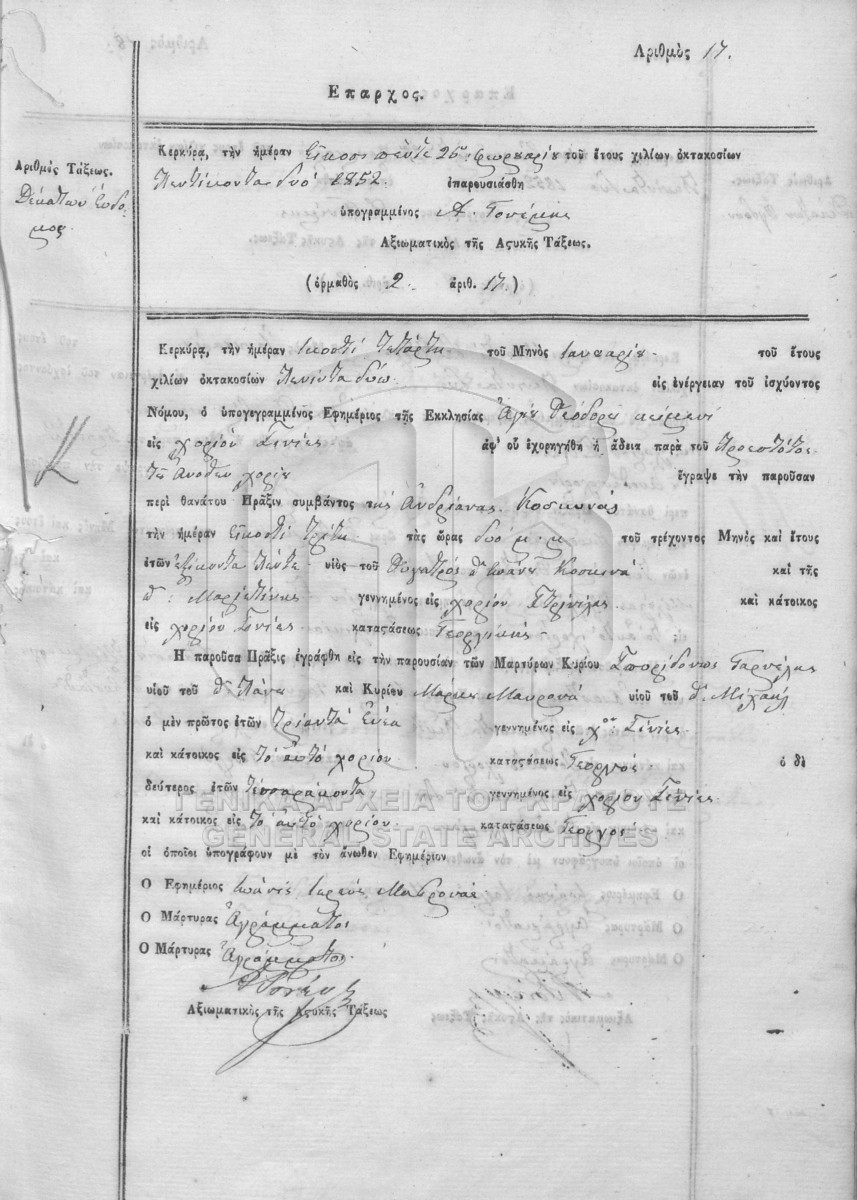 Αριθμὸς 17.
Επαρχος.
Αριθμὸς Τάξεως.
Δέκατον Ευδο-
μος
Κερκύρα, τὴν ἡμέραν Εἴκοσι πέντε 25 φεβρουαρίου τοῦ ἔτους χιλίων ὀκτακοσίων
Πεντίκοντα δυό 1852. ἐπαρουσιάσθη
ὑπογραμμένος Α.
Αξιωματικὸς τῆς Αςυκῆς Τάξεως.
(ὁρμαθὸς 2. ἀριθ. 17.)
Κερκύρα, τὴν ἡμέραν ικοστί τετάρτη τοῦ Μηνὸς Ιανουαρίου τοῦ ἔτους
χιλίων ὀκτακοσίων πενίντα δύω εἰς ἐνέργειαν τοῦ ἰσχύοντος
Νόμου, ὁ ὑπογεγραμμένος Εφημέριος τῆς Εκκλησίας Ἁγίου Θεόδορου
εἰς χορίον Σινίες ἀφ' οὗ ἐχορηγήθη ἡ ἄδεια παρὰ τοῦ Προεστότος
τοῦ ἄνοθεν χορίου ἔγραψε τὴν παροῦσαν
περὶ θανάτου Πρᾶξιν συμβάντος της Ἀνδριάνας Κοσκινάς
τὴν ἡμέραν εἰκοστὶ τρίτη τὰς ὥρας δυό μ.μ. τοῦ τρέχοντος Μηνὸς καὶ ἔτους
ἐτῶν ἐξίκοντα πέντε υἱὸς τοῦ θυγατρός π Ιωάνου Κοσκινά καὶ τῆς
π: γεννημένος εἰς χορίον καὶ κάτοικος
εἰς χορίον Σινίες καταςάσεως Γεοργικής
Η παροῦσα Πρᾶξις ἐγράφθη εἰς τὴν παρουσίαν τῶν Μαρτύρων Κυρίου Σπυρίδονος
υἱοῦ τοῦ π Πάνου καὶ Κυρίου Μάρκου Μαυρονά υἱοῦ τοῦ π Μιχαήλ
ὁ μὲν πρῶτος ἐτῶν τριάντα ἐνέα γεννημένος εἰς χον Σινίες
καὶ κάτοικος εἰς τὸ αὐτό χορίον καταςάσεως Γεοργός ὁ δὲ
δεύτερος ἐτῶν τεσσαράκοντα γεννημένος εἰς χορίον Σινίες
καὶ κάτοικος εἰς τὸ αὐτό χορίον καταςάσεως Γεοργός
οἱ ὁποῖοι ὑπογράφουν μὲ τὸν ἄνωθεν Εφημέριον
Ο Εφημέριος Ιωάνις Ιερεύς Μαυρονάς
Ο Μάρτυρας Ἀγράμματος
Ο Μάρτυρας Ἀγράμματος
Αξιωματικὸς τῆς Αςυκῆς Τάξεως
ΓΕΝΙΚΑ ΑΡΧΕΙΑ ΤΟΥ ΚΡΑΤΟΥΣ
GENERAL STATE ARCHIVES